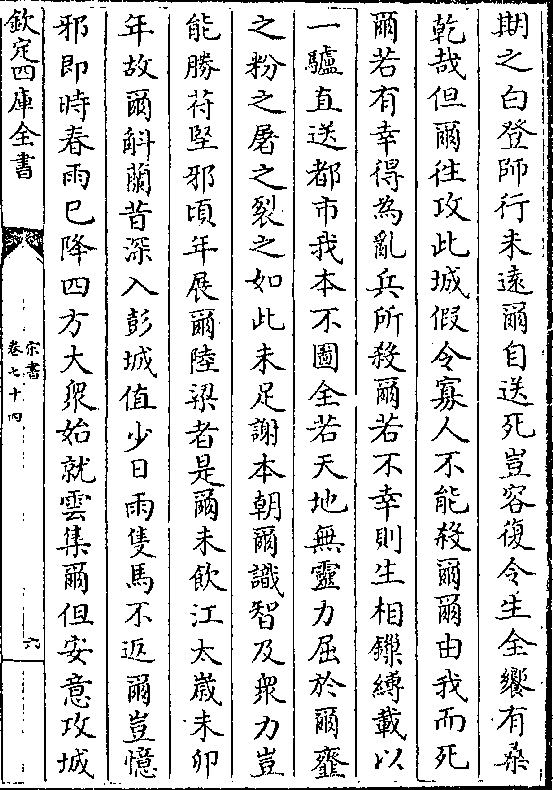 期之白登師行未遠爾自送死豈容復令生全饗有桑
乾哉但爾往攻此城假令寡人不能殺爾爾由我而死
爾若有幸得為亂兵所殺爾若不幸則生相鏁縛載以
一驢直送都市我本不圖全若天地無靈力屈於爾齏
之粉之屠之裂之如此未足謝本朝爾識智及衆力豈
能勝苻堅邪頃年展爾陸梁者是爾未飲江太歲未卯
年故爾斛蘭昔深入彭城值少日雨隻馬不返爾豈憶
邪即時春雨已降四方大衆始就雲集爾但安意攻城
欽定四庫全書
宋書
卷七十四
六